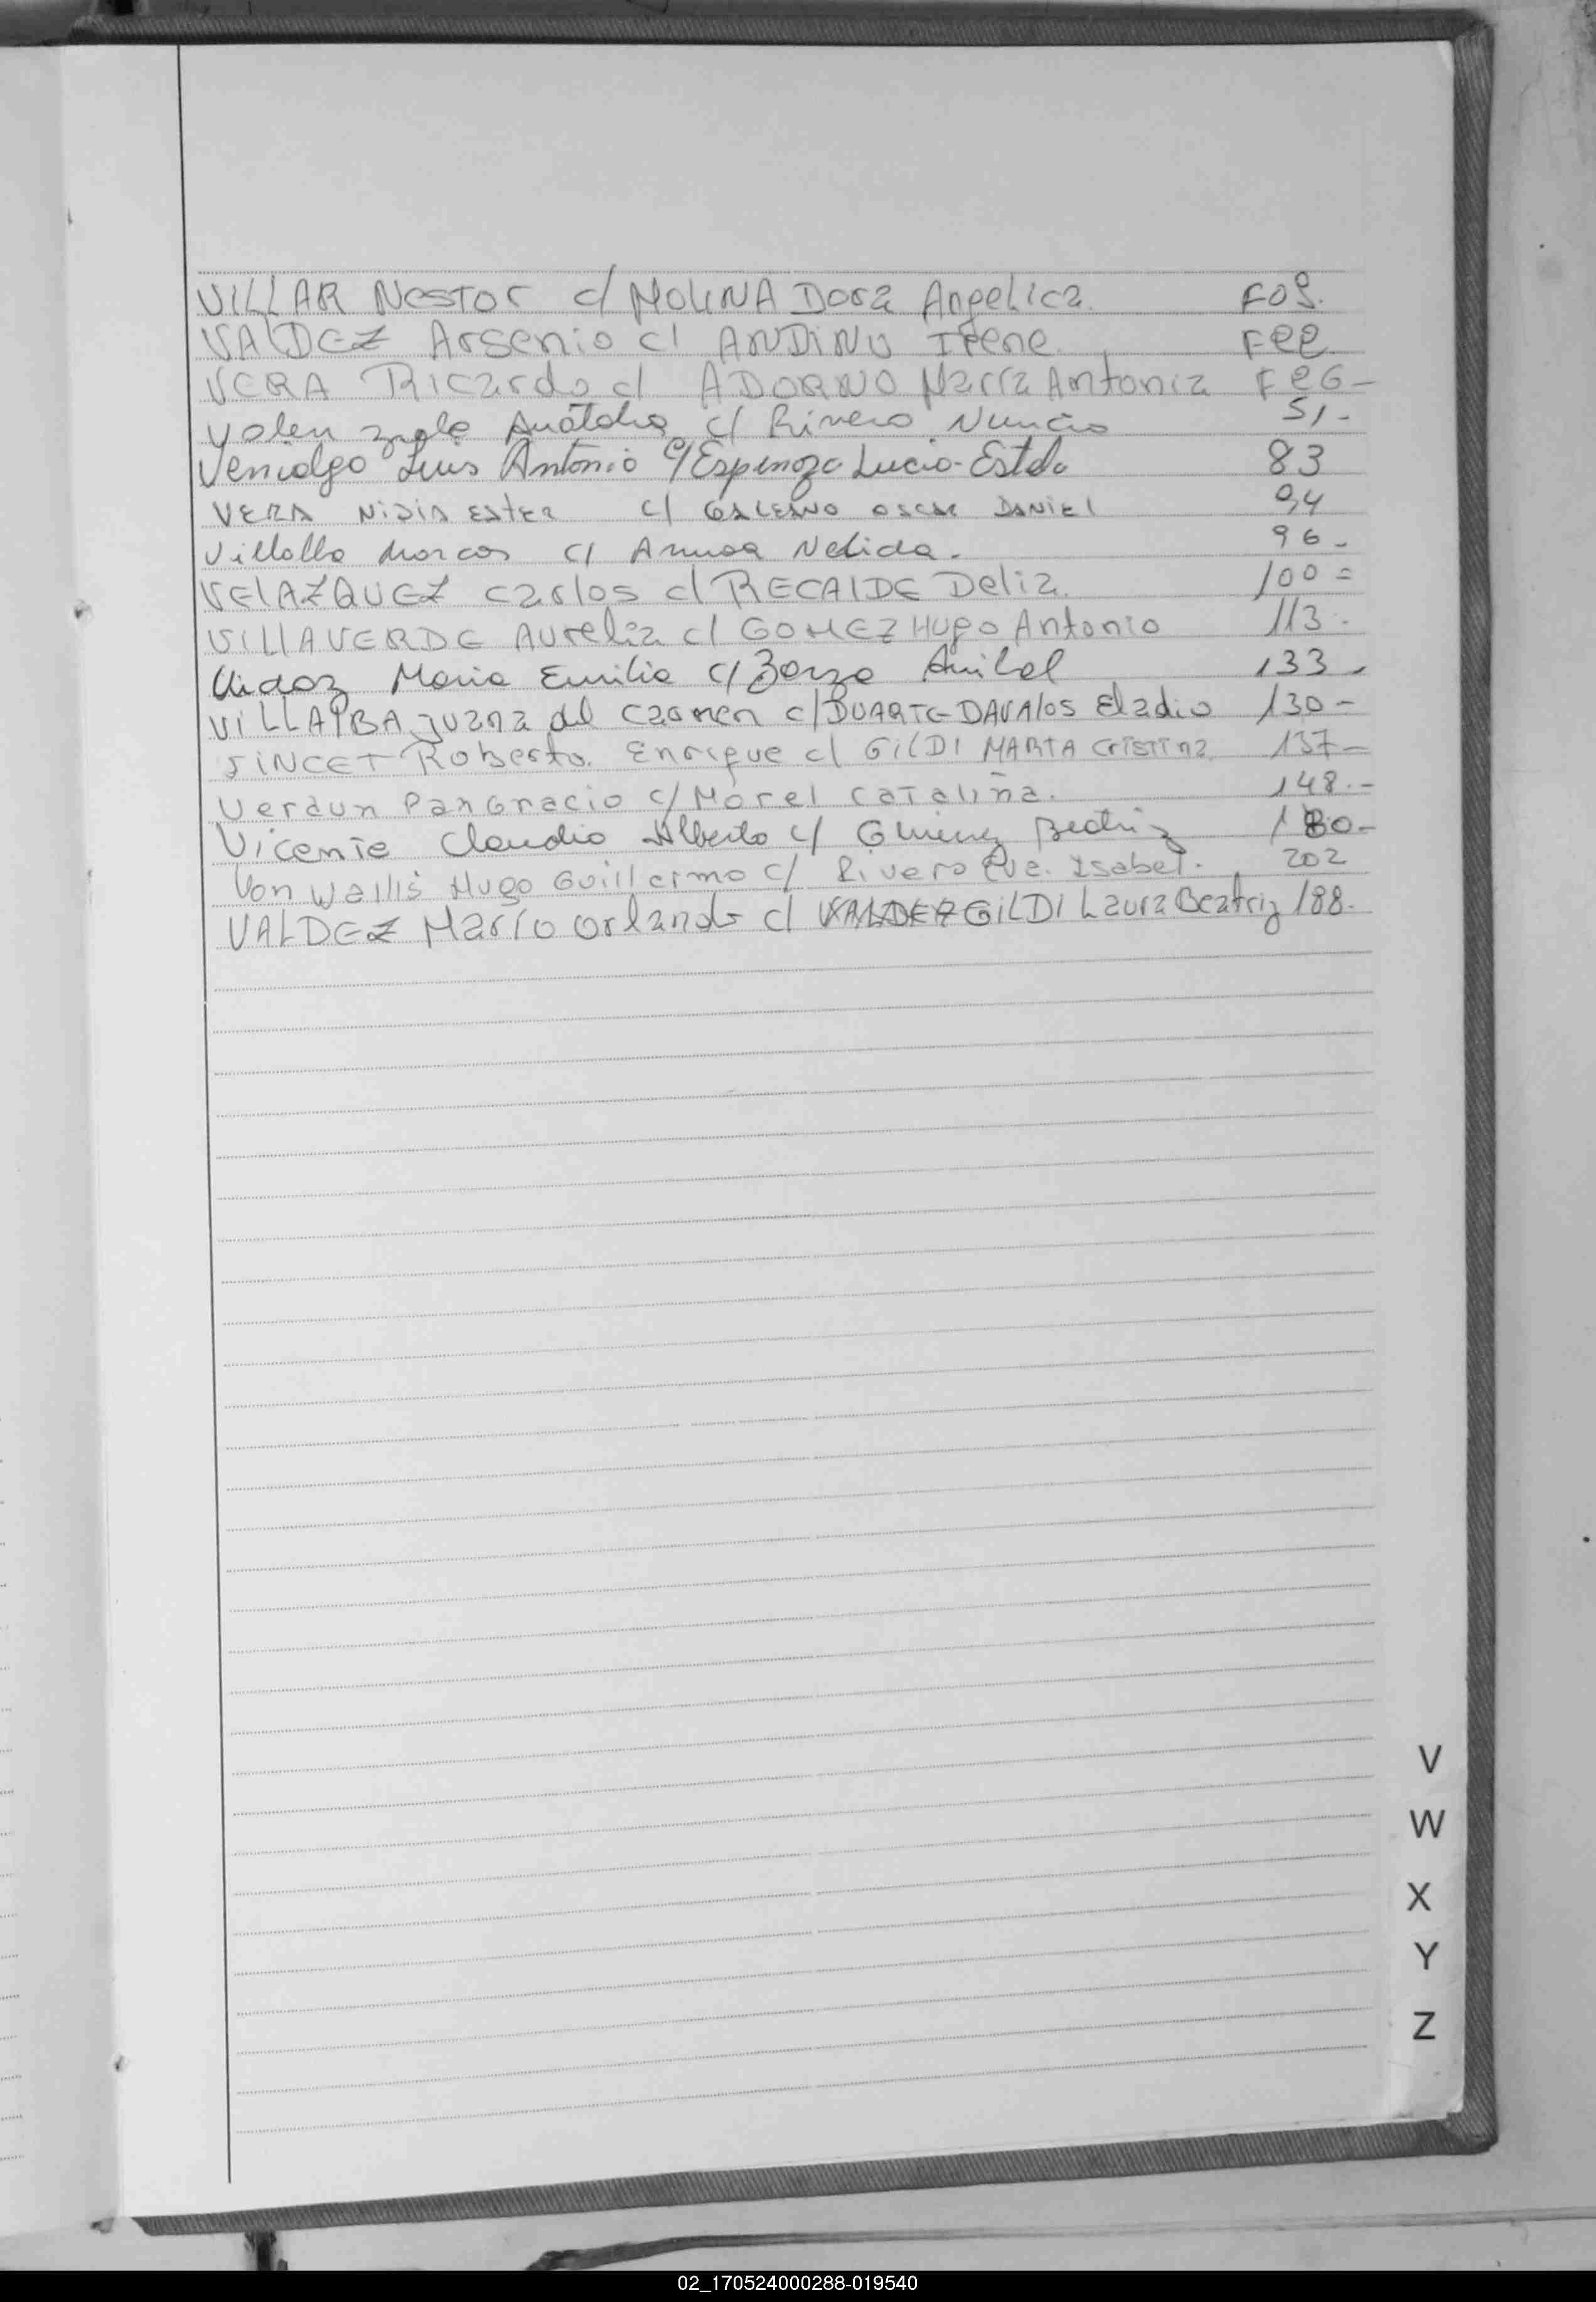 VILLAR Nestor c/ MOLINA Dora Angelica. F05.
VALDEZ Arsenio c/ ANDINO Irene. F22
VERA Ricardo c/ ADORNO María Antonia F26-
Valenzuela Anatolia c/ Rivero Nuncio 51.-
Venialgo Luis Antonio c/ Espinoza Lucia Estela 83
VERA NIDIA ESTER c/ GALEANO OSCAR DANIEL 94
Villalba Marcos c/ Nelida. 96-
VELAZQUEZ Carlos c/ RECALDE Delia. 100=
VILLAVERDE Aurelia c/ GOMEZ Hugo Antonio 113.
Maria Emilia c/ Anibal 133-
VILLALBA Juana del Carmen c/ DUARTE DAVALOS Eladio 130-
VINCET Roberto Enrique c/ GILDI MARTA Cristina 137-
Verdun Pangracio c/ Morel Cataliña. 148.-
Vicente Claudio Alberto c/ Beatriz 180-
Von Wallis Hugo Guillermo c/ Rivero Eva Isabel. 202
VALDEZ Marío Orlando c/ VALDEZ GILDI Laura Beatriz 188.
V
W
X
Y
Z
02_170524000288-019540